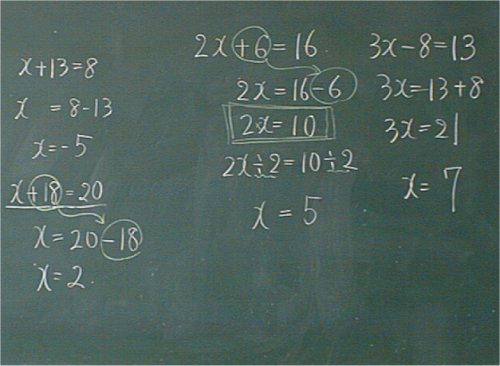 x+13=8
x =8-13
x=-5
x+18=20
x=20-18
x=2.
2x+6=16
2x=16-6
2x=10
2x÷2=10÷2
x=5
3x-8=13
3x=13+8
3x=21
x=7